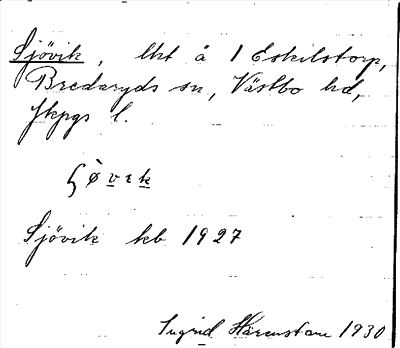 Sjövik, lht å 1 Eskilstorp,
Bredaryds sn, Västbo hd,
Jkpgs l.
Sjövik kb 1927
Ingrid 1930